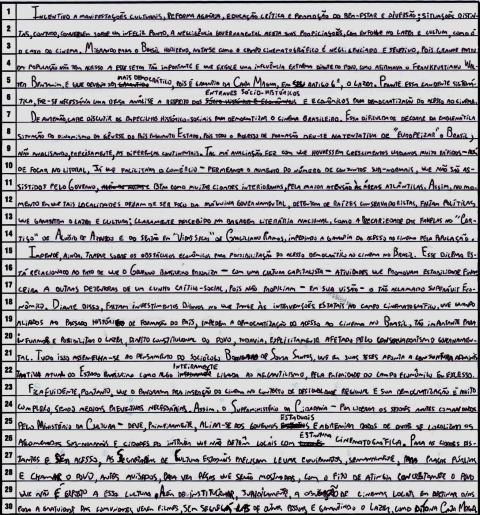 1 INCENTIVO A MANIFESTAÇÕES CULTURAIS, REFORMA AGRÁRIA, EDUCAÇÃO CRÍTICA E PROMOÇÃO DO BEM-ESTAR E DIVERSÃO: SITUAÇÕES DISTIN-
2 TAS, CONTUDO, CONVERGEM SOBRE UM INFELIZ PONTO, A NEGLIGÊNCIA GOVERNAMENTAL NESTA SUAS, COM ENFOQUE NO LAZER E CULTURA, COMO É
3 O CASO DO CINEMA. PARA O BRASIL HODIERNO, NOTA-SE COMO O CAMPO CINEMATOGRÁFICO É NEGLIGENCIADO E SELETIVO, POIS GRANDE PARTE
4 DA POPULAÇÃO NÃO TEM ACESSO A ESSE SETOR TÃO IMPORTANTE E QUE EXERCE UMA INFLUÊNCIA EXTREMA DENTRO DO POVO, COMO O FRANKFURTIANO WAL-
5 TER BENJAMIN, E QUE DEVERIA SER MAIS DEMOCRÁTICO, POIS É GARANTIA DA CARTA MAGNA, EM SEU ARTIGO 6º, O LAZER. PERANTE ESSA SISTEMÁ-
6 TICA, FAZ-SE NECESSÁRIA UMA ANÁLISE A RESPEITO DOS ENTRAVES SÓCIO-HISTÓRICOS E ECONÔMICOS PARA DEMOCRATIZAÇÃO DO ACESSO AO CINEMA.
7 DE ANTEMÃO, CABE DISCUTIR OS EMPECILHOS HISTÓRICO-SOCIAIS PARA DEMOCRATIZAR O CINEMA BRASILEIRO. ESSA DIFICULDADE DECORRE DA
8 SITUAÇÃO DO DINAMISMO DA GÊNESE DO ESTADO, POIS TODO O PROCESSO DE FORMAÇÃO DEU-SE NA TENTATIVA DE "EUROPEIZAR" O BRASIL,
9 NÃO ANALISANDO, PRECISAMENTE, AS DIFERENÇAS CONTINENTAIS. TAL MÁ AVALIAÇÃO FEZ COM QUE HOUVESSEM CRESCIMENTOS URBANOS MUITO RÁPIDOS
10 DE FOCAR NO LITORAL, JÁ QUE FACILITAVA O COMÉRCIO - PERMITINDO O AUMENTO DO NÚMERO DE CONJUNTOS SUB-NORMAIS, QUE NÃO SÃO AS-
11 SISTIDOS PELO GOVERNO, BEM COMO MUITAS CIDADES INTERIORANAS, PELA MAIOR ATENÇÃO ÀS ÁREAS ATLÂNTICAS. ASSIM, NO MO-
12 MENTO EM QUE TAIS LOCALIDADES DEIXAM DE SER FOCO DA MÁQUINA GOVERNAMENTAL, DE RAÍZES CONSERVADORISTAS, FALTAM POLÍTICAS
13 QUE GARANTAM O LAZER E CULTURA; CLARAMENTE PERCEBIDO NA BAGAGEM LITERÁRIA NACIONAL, COMO A PRECARIEDADE DAS FAVELAS NO "COR-
14 TIÇO" DE ALUÍSIO DE AZEVEDO E DO SERTÃO EM "VIDAS SECAS" DE GRACILIANO RAMOS, IMPEDINDO A GARANTIA DO ACESSO AO CINEMA PELA POPULAÇÃO.
15 PENDE, AINDA, TRATAR SOBRE OS OBSTÁCULOS ECONÔMICOS PARA POSSIBILITAÇÃO DO ACESSO DEMOCRÁTICO AO CINEMA NO BRASIL. ESSE DILEMA ES-
16 TÁ RELACIONADO AO FATO DE QUE O GOVERNO BRASILEIRO PRIORIZA - COM UMA CULTURA CAPITALISTA - ATIVIDADES QUE PROMOVAM ESTABILIDADE FINAN-
17 CEIRA A OUTRAS DETENTORAS DE UM CUNHO CRÍTICO-SOCIAL, POIS NÃO PROPICIAM - EM SUA VISÃO - O TÃO ACLAMADO SUPERÁVIT ECO-
18 NÔMICO. DIANTE DISSO, FALTAM INVESTIMENTOS DIGNOS NO QUE TANGE ÀS INTERVENÇÕES ESTATAIS NO CAMPO CINEMATOGRÁFICO, QUE QUANDO
19 ALIADOS AO PASSADO HISTÓRICO DE FORMAÇÃO DO PAÍS, IMPEDEM A DEMOCRATIZAÇÃO DO ACESSO AO CINEMA NO BRASIL, TÃO IMPORTANTE PARA
20 E POSSIBILITAR O LAZER, DIREITO CONSTITUCIONAL DO POVO, TODAVIA, EXPLICITAMENTE AFETADO PELO CONSERVADORISMO GOVERNAMEN-
21 TAL. TUDO ISSO ASSEMELHA-SE AO PENSAMENTO DO SOCIÓLOGO BOAVENTURA DE SOUSA SANTOS, QUE EM SUAS TESES APONTA A ADMINIS-
22 TRATIVA ATUAL DO ESTADO BRASILEIRO COMO ALGO INTEIRAMENTE LIGADA AO MERCANTILISMO, PELA ENFERMIDADE DO CAMPO ECONÔMICO EM EXCESSO.
23 FICA EVIDENTE, PORTANTO, QUE O PANORAMA DA INSERÇÃO DO CINEMA NO CONTEXTO DE DESIGUALDADE REGIONAL E SUA DEMOCRATIZAÇÃO É MUITO
24 COMPLEXO, SENDO MEDIDAS PREVENTIVAS NECESSÁRIAS. ASSIM, O SUPRAMINISTÉRIO DA CIDADANIA - POR LIDERAR OS SETORES ANTES COMANDADOS
25 PELO MINISTÉRIO DA CULTURA - DEVE, PRIMEIRAMENTE, ALIAR-SE AOS GOVERNOS ESTADUAIS E DADOS DE ONDE SE LOCALIZAM OS
26 AGLOMERADOS SUB-NORMAIS E CIDADES DO INTERIOR QUE NÃO DETÊM LOCAIS COM ESTRUTURA CINEMATOGRÁFICA. PARA AS CIDADES DIS-
27 TANTES E SEM ACESSO, AS SECRETARIAS DE CULTURA ESTADUAIS PRECISAM LEVAR CAMINHÕES, SEMANALMENTE, PARA PRAÇAS PÚBLICAS
28 E CHAMAR O POVO, ANTES AVISADOS, PARA VER PEÇAS QUE SERÃO MOSTRADAS, COM O FITO DE ATINGIR O POVO
29 QUE NÃO É EXPOSTO A ESSA CULTURA. ALÉM DE INSTITUCIONAR, JURIDICAMENTE, A DE CINEMAS LOCAIS EM DESTINAR DIAS
30 PARA A GRATUIDADE DAS COMUNIDADES VEREM FILMES, SEM SEGREGÁ-LAS DE OUTRAS PESSOAS E GARANTINDO O LAZER, COMO DITA NA CARTA MAGNA.